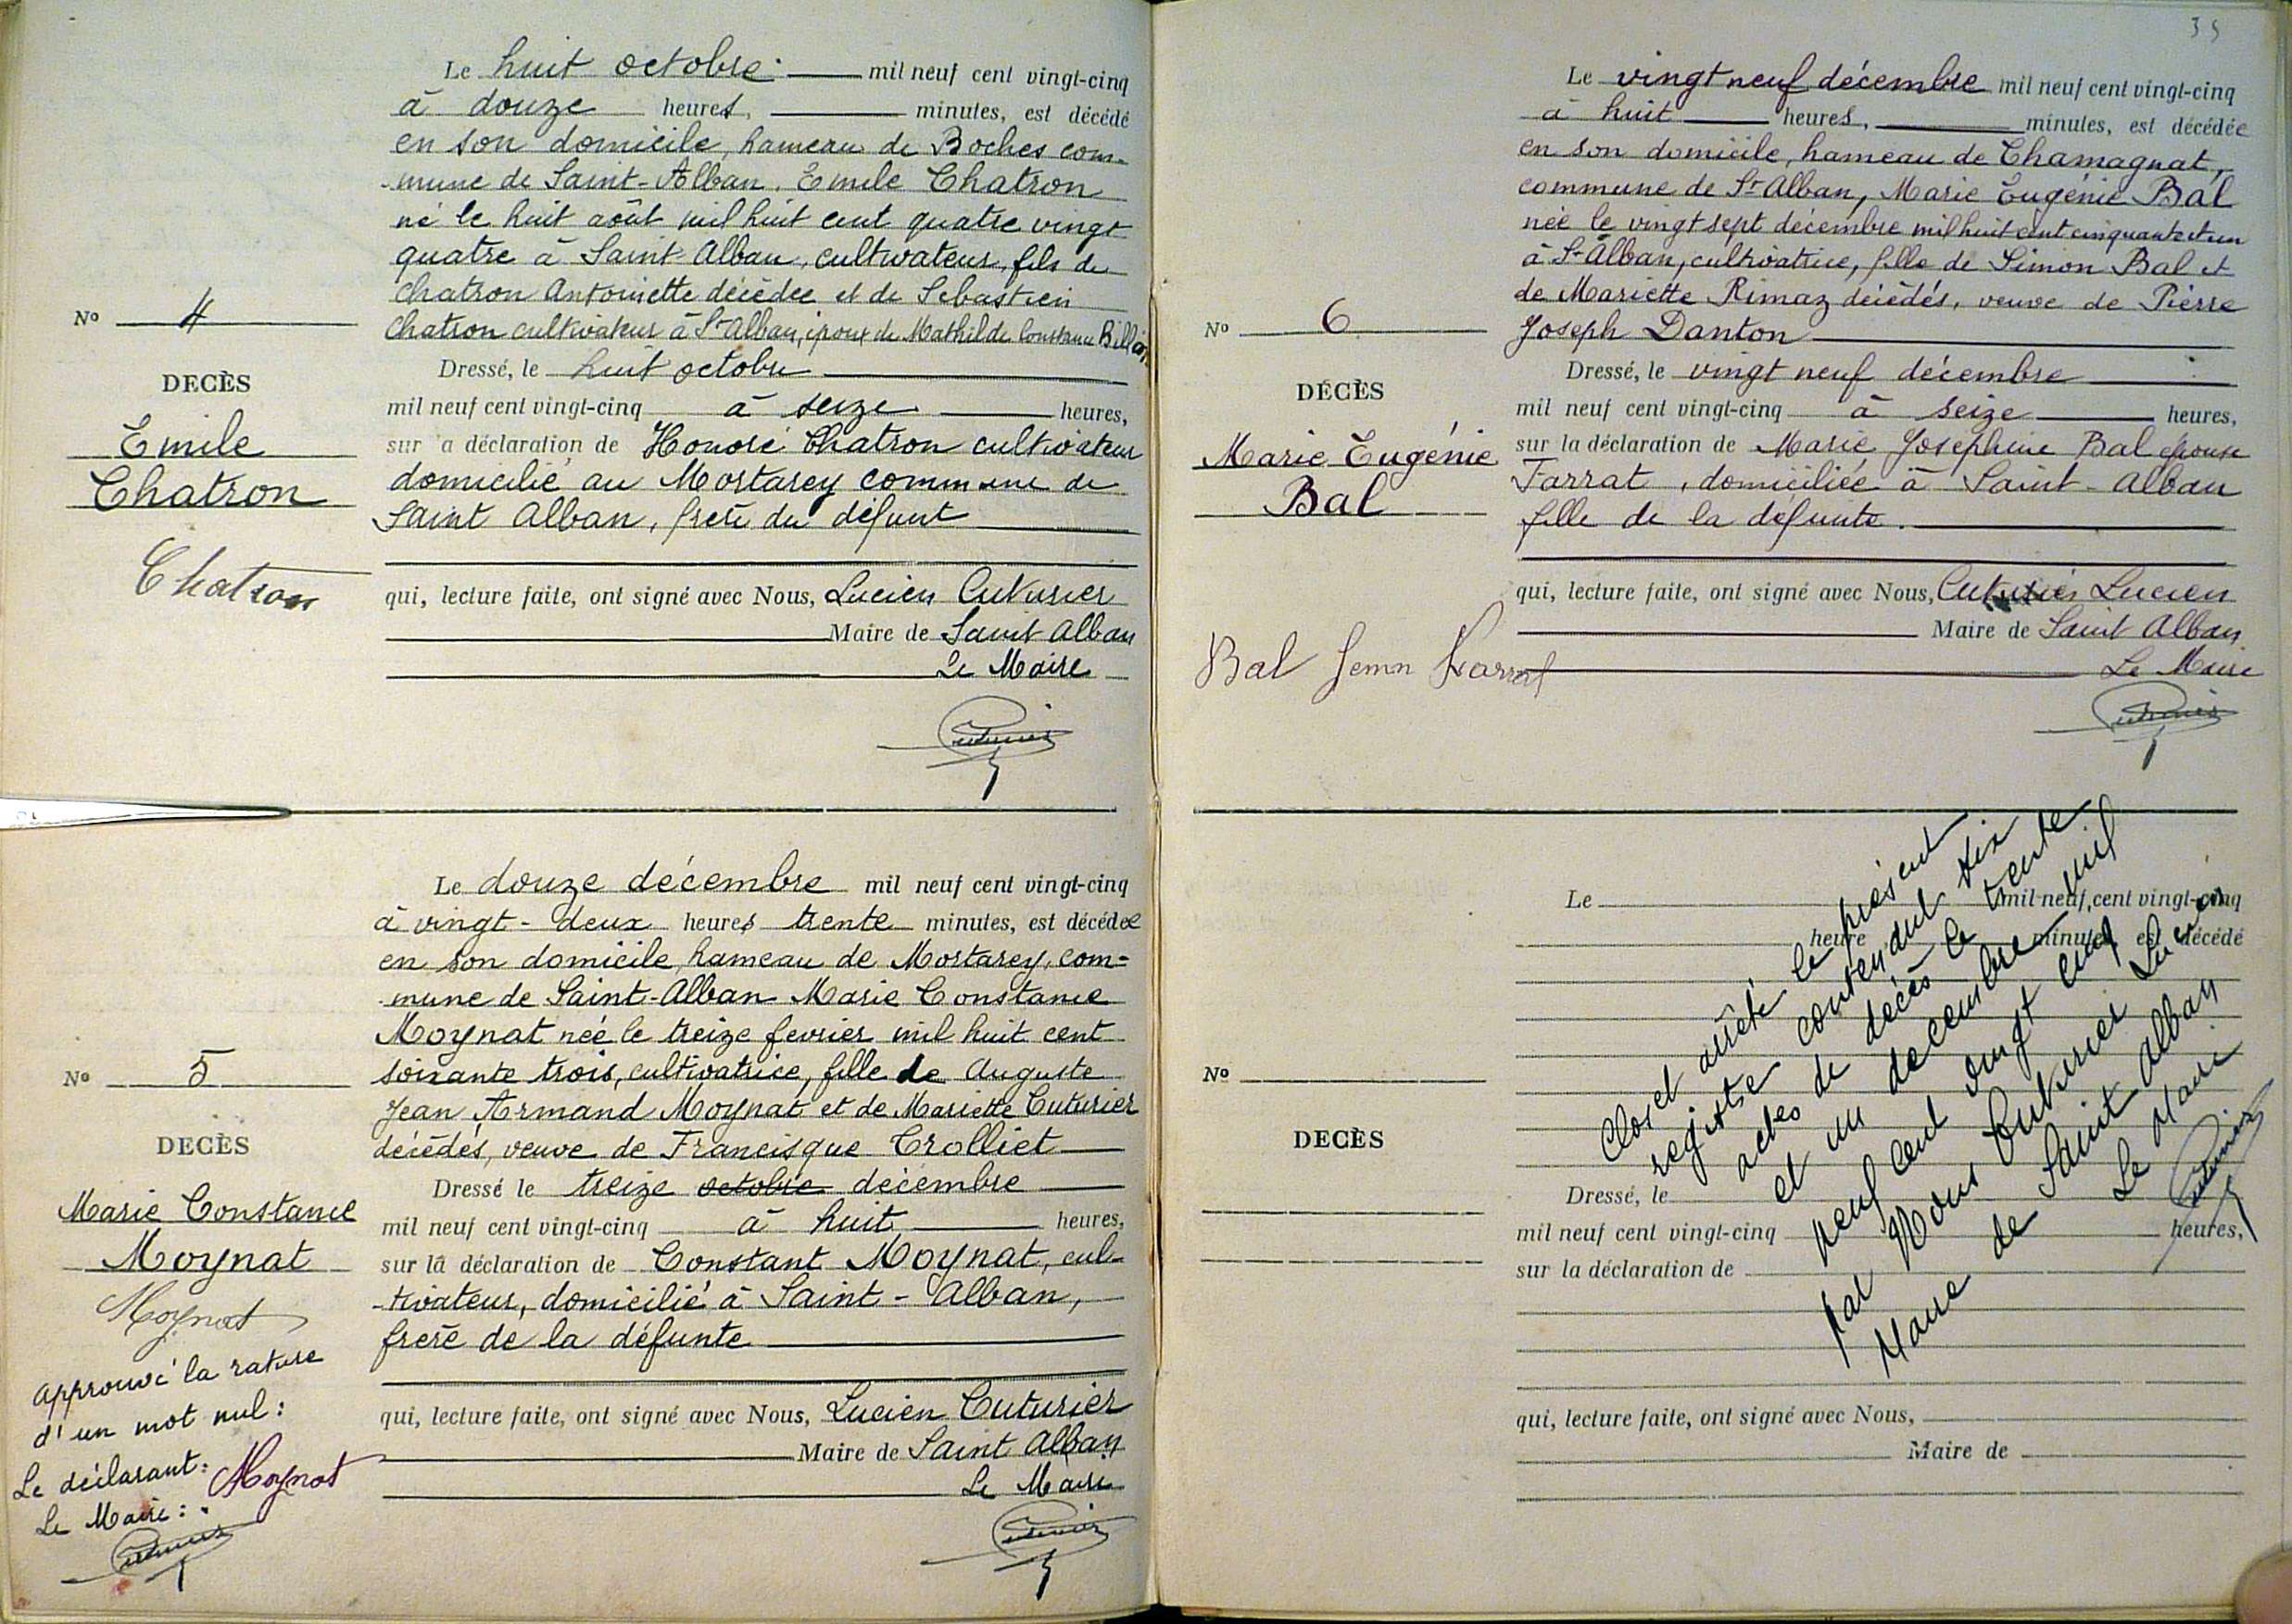 Le huit octobre mil neuf cent vingt-cinq
à douze heures, minutes, est décédé
en son domicile, hameau de Boches com-
mune de Saint-Alban. Emile Chatron
né le huit août mil huit cent quatre vingt
quatre à Saint-Alban, cultivateur, fils de
Chatron Antoinette décédée et de Sebastien
Chatron cultivateur à St Alban, époux de Mathilde Constance
Nº 4
DECÈS
Emile
Chatron
Dressé, le huit octobre
mil neuf cent vingt-cinq à seize heures,
sur a déclaration de Honoré Chatron cultivateur
domicilié au Mortarey commune de
Saint Alban, frere du défunt
Chatron
qui, lecture faite, ont signé avec Nous, Lucien Cuturier
Maire de Saint Alban
Le Maire
Cuturier
Le douze décembre mil neuf cent vingt-cinq
à vingt-deux heures trente minutes, est décédée
en son domicile, hameau de Mortarey, com=
mune de Saint-Alban Marie Constance
Moynat née le treize fevrier mil huit cent
soixante trois, cultivatrice, fille de Auguste
Jean Armand Moynat et de Mariette Cuturier
décédés, veuve de Francisque Trolliet
Nº 5
DECÈS
Marie Constance
Moynat
Dressé le treize octobre décembre
mil neuf cent vingt-cinq à huit heures,
sur la déclaration de Constant Moynat, cul-
tivateur, domicilié à Saint-Alban,
frere de la défunte
Moynat
Approuvé la rature
d'un mot nul:
Le déclarant: Moynat
Le Maire:
Cuturier
qui, lecture faite, ont signé avec Nous, Lucien Cuturier
Maire de Saint Alban
Le Maire
Cuturier
35
Le vingt neuf décembre mil neuf cent vingt-cinq
à huit heures, minutes, est décédée
en son domicile, hameau de Chamagnat,
commune de St-Alban, Marie Eugénie Bal
née le vingt sept décembre mil huit cent cinquante et un
à St-Alban, cultivatrice, fille de Simon Bal et
de Mariette Rimaz décédés, veuve de Pierre
Joseph Danton
Nº 6
DÉCÈS
Marie Eugénie
Bal
Dressé, le vingt neuf décembre
mil neuf cent vingt-cinq à seize heures,
sur la déclaration de Marie Josephine Bal épouse
Farrat, domiciliée à Saint-Alban
fille de la défunte.
qui, lecture faite, ont signé avec Nous, Cuturier Lucien
Maire de Saint Alban
Le Maire
Bal femn
Cuturier
Le mil neuf cent vingt-cinq
heure minutes est décédé
Nº
DECÈS
Dressé, le
mil neuf cent vingt-cinq heures,
sur la déclaration de
qui, lecture faite, ont signé avec Nous,
Maire de
Clos et arrêté le présent
registre contenant six
actes de décès le trente
et un decembre mil
neuf cent vingt cinq
par Nous Cuturier Lucien
Maire de Saint Alban
Le Maire
Cuturier